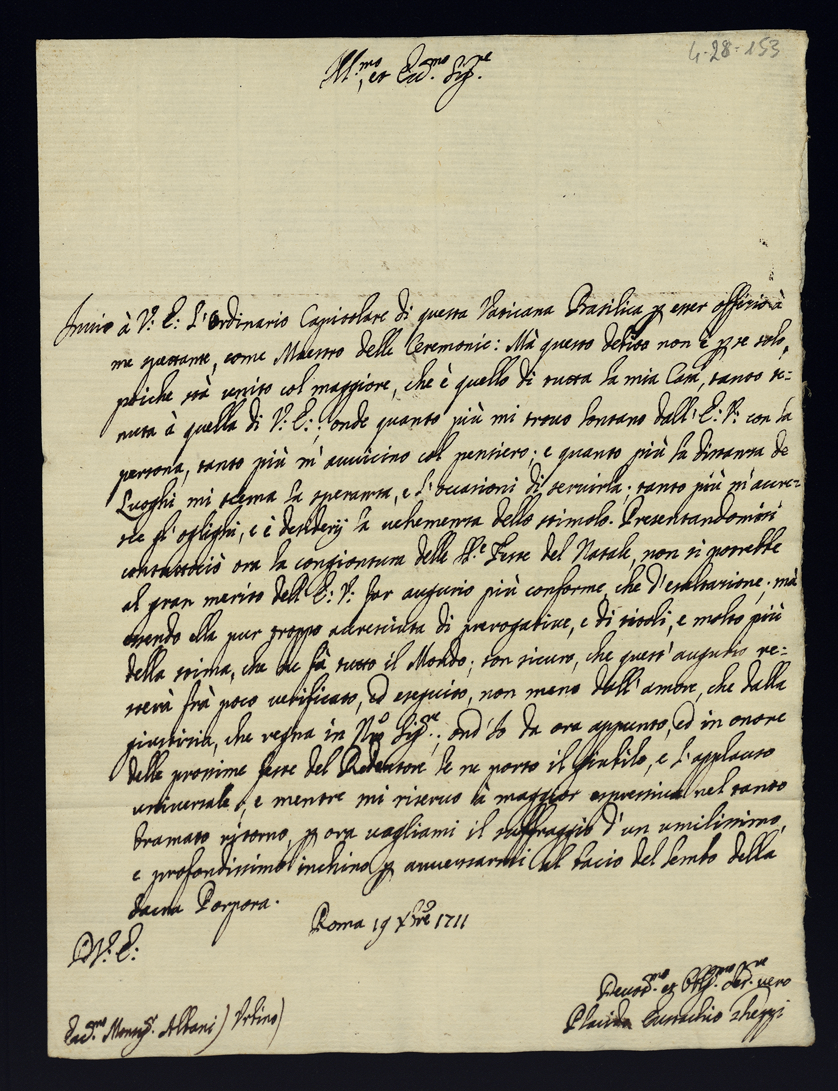 4-28-153
Ill.mo, et Ecc.mo Sig.re
Inuio à V: E: L'Ordinario Capitolare di questa Vaticana Basilica p esser offizio à
me spettante, come Maestro delle Ceremonie: Mà questo debito non è p se solo,
poiche stà unito col maggiore, che è quello di tutta la mia Casa, tanto te=
nuta à quella di V: E:; onde quanto più mi trouo lontano dall'E: V: con la
persona, tanto più m'auuicino col pensiero; e quanto più la distanza de
Luoghi mi scema la speranza, e l'occasioni di seruirla; tanto più m'accre=
sce gl'oblighi, e è desiderij la uehemenza dello stimolo. Presentandomisi
contuttociò ora la congiontura delle S.e Feste del Natale, non si potrebbe
al gran merito dell'E: V: far augurio più conforme, che d'esaltazione; mà
essendo ella pur troppo accresciuta di prerogatiue, e di titoli, e molto più
della stima, che ne fà tutto il Mondo; son sicuro, che quest'augurio re=
sterà frà poco uerificato, ed eseguito, non meno dall'amore, che dalla
giustizia, che regna in N.ro Sig.re; ond'Io da ora appunto, ed in onore
delle prossime feste del Redentore le ne porto il giubilo, e l'applauso
uniuersale, e mentre mi riseruo à maggior espressiua nel tanto
bramato ritorno, p ora uagliami il suffraggio d'un umilissimo,
e profondissimo inchino p auuanzarmi al bacio del lembo della
sacra Porpora.
Roma 19 Xbre 1711
D V: E:
Ecc.mo Monsig.r Albani) Urbino)
Deuot.mo et Obl.mo Ser.re uero
Placido Eustachio